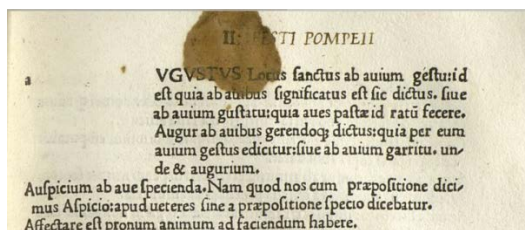 II. FESTI POMPEII
a
VGVSTVS Locus sanctus ab auium gestu:id
est quia ab auibus significatus est sic dictus. siue
ab auium gustatu:quia aues pastæ id ratū fecere.
Augur ab auibus gerendoq; dictus:quia per eum
auium gestus edicitur:siue ab auium garritu. un-
de & augurium.
Auspicium ab aue specienda. Nam quod nos cum præpositione dici-
mus Aspicio:apud ueteres sine a præpositione specio dicebatur.
Affectare est pronum animum ad faciendum habere.